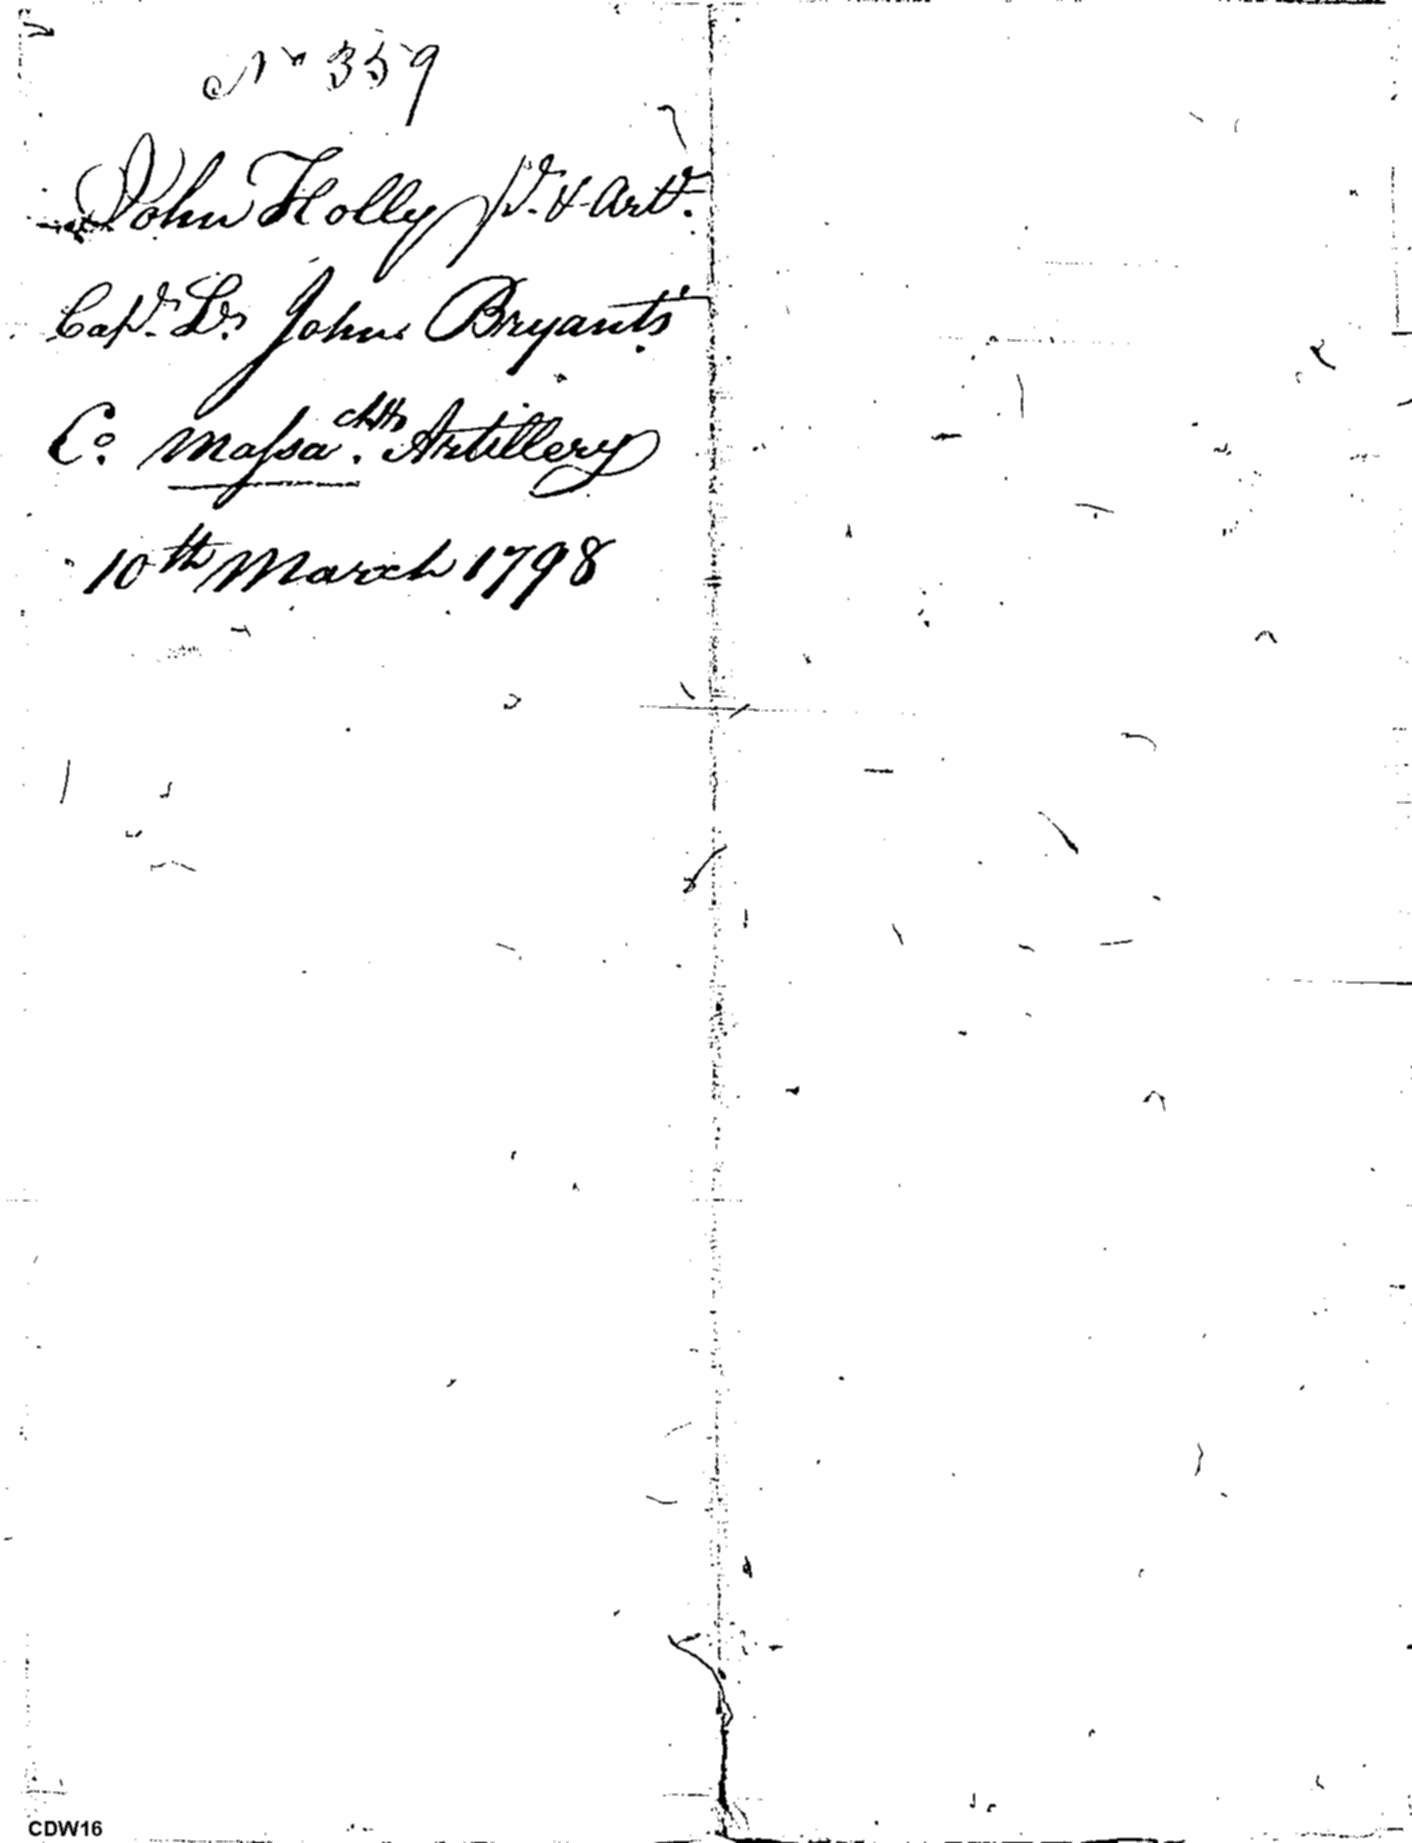 No 359
John Holly pd. & Artt.
Capt. Lt. John Bryant's
Co. Massachtts. Artillery
10th March 1798
CDW16